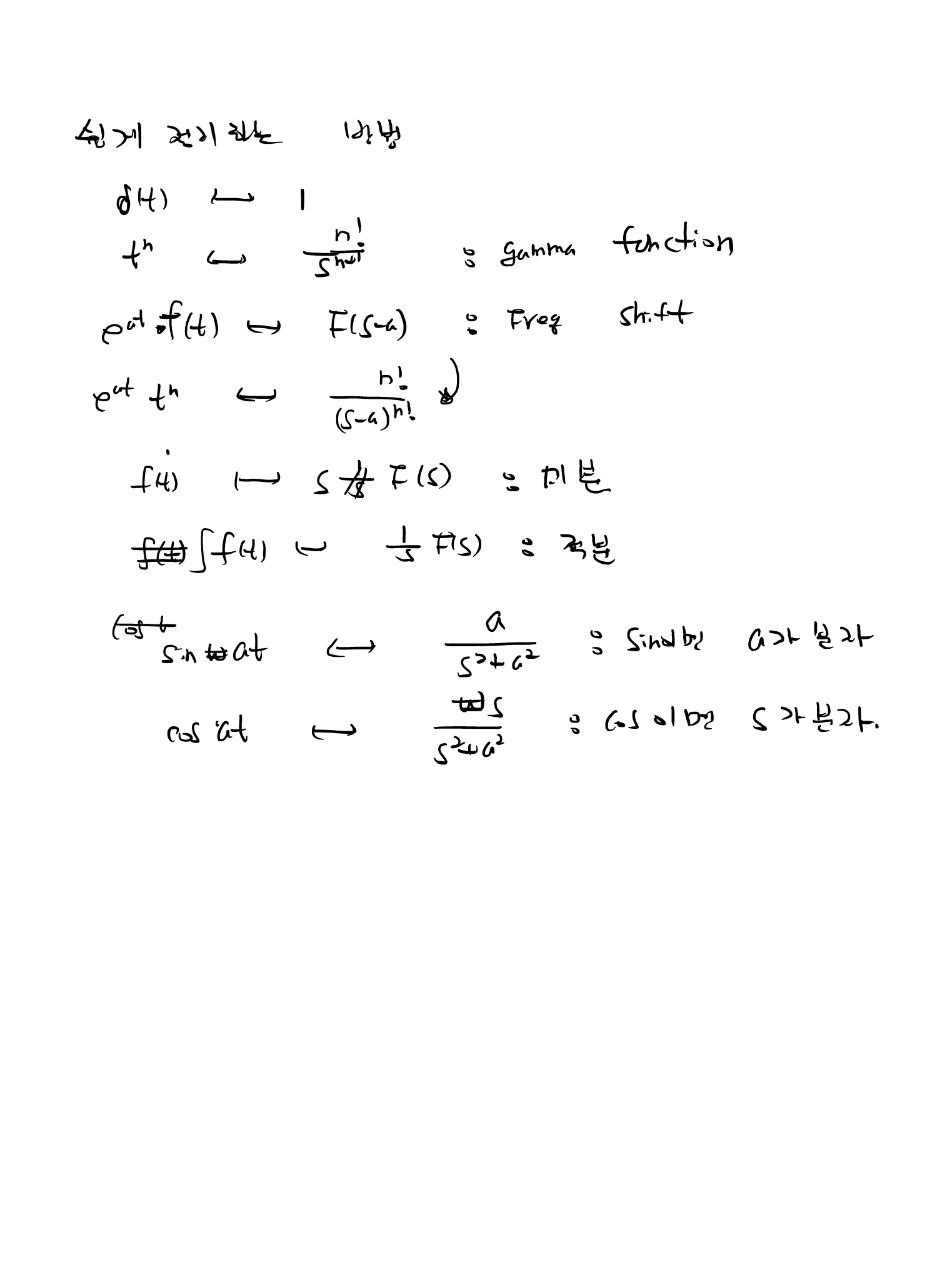 쉽게 전개하는 방법
δ(t) ↔ 1
tⁿ ↔ n!/sⁿ⁺¹ : gamma function
eᵃᵗ·f(t) ↔ F(s-a) : Freq shift
eᵃᵗ tⁿ ↔ n!/(s-a)ⁿ!
ḟ(t) ↔ s F(s) : 미분
∫f(t) ↔ 1/s F(s) : 적분
sin at ↔ a/(s²+a²) : sin이면 a가 분자
cos at ↔ s/(s²+a²) : cos이면 s가 분자.